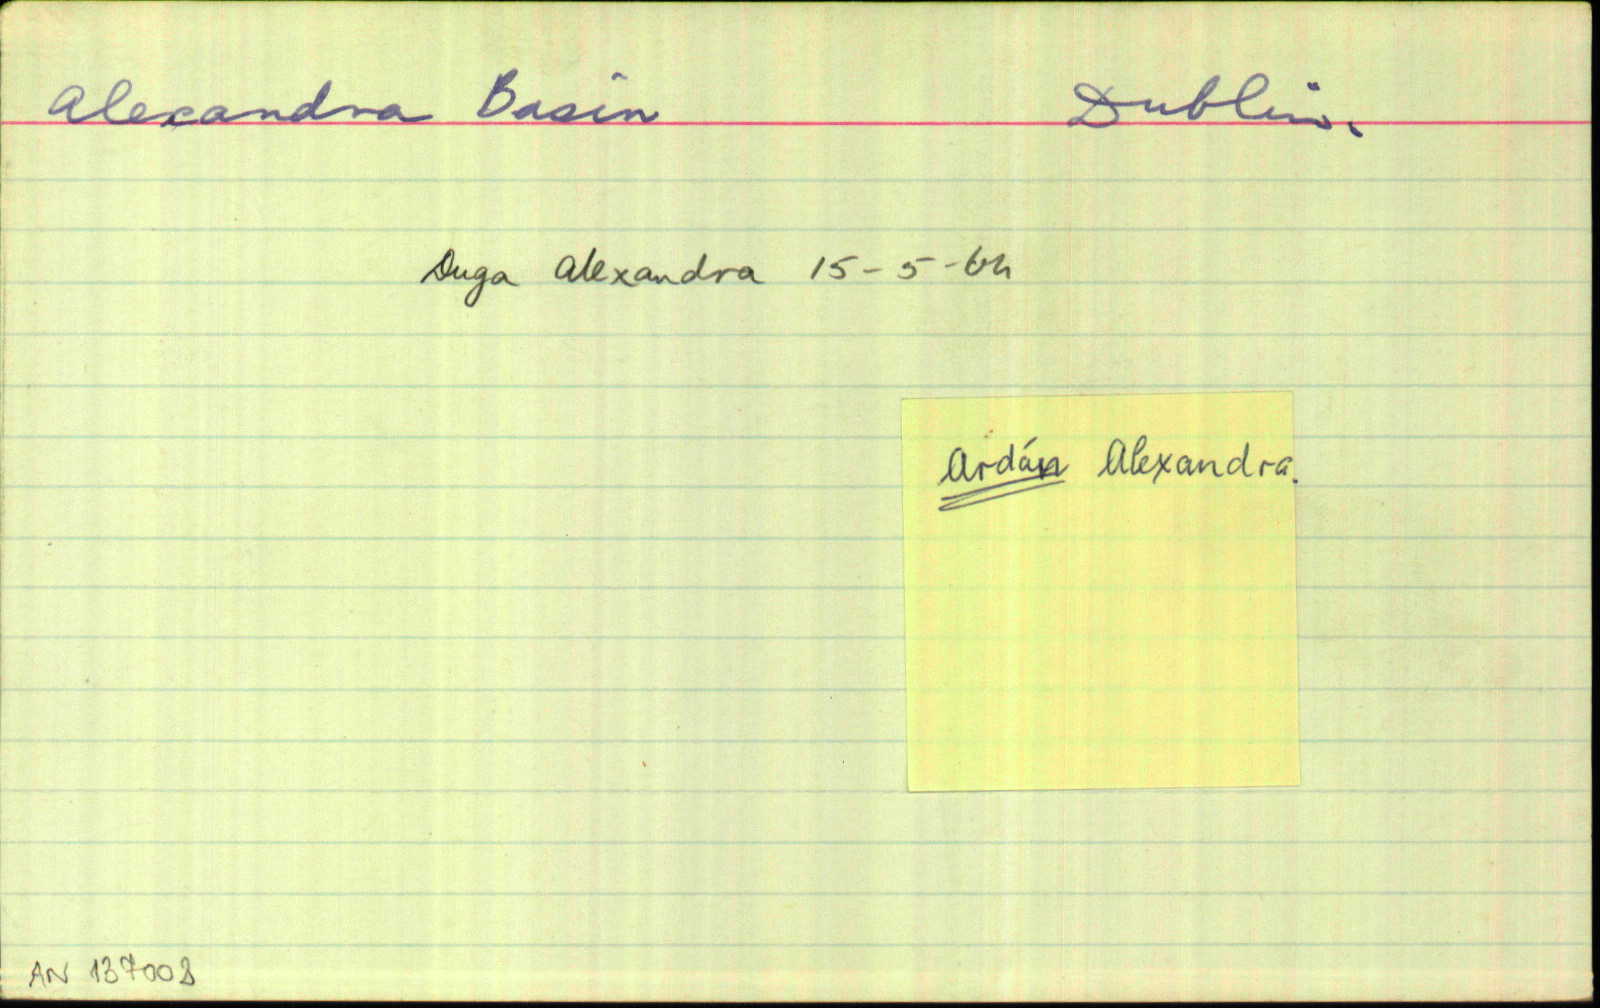 Alexandra Basin Dublin.
Duga Alexandra 15-5-64
Ardán Alexandra.
AN 137008